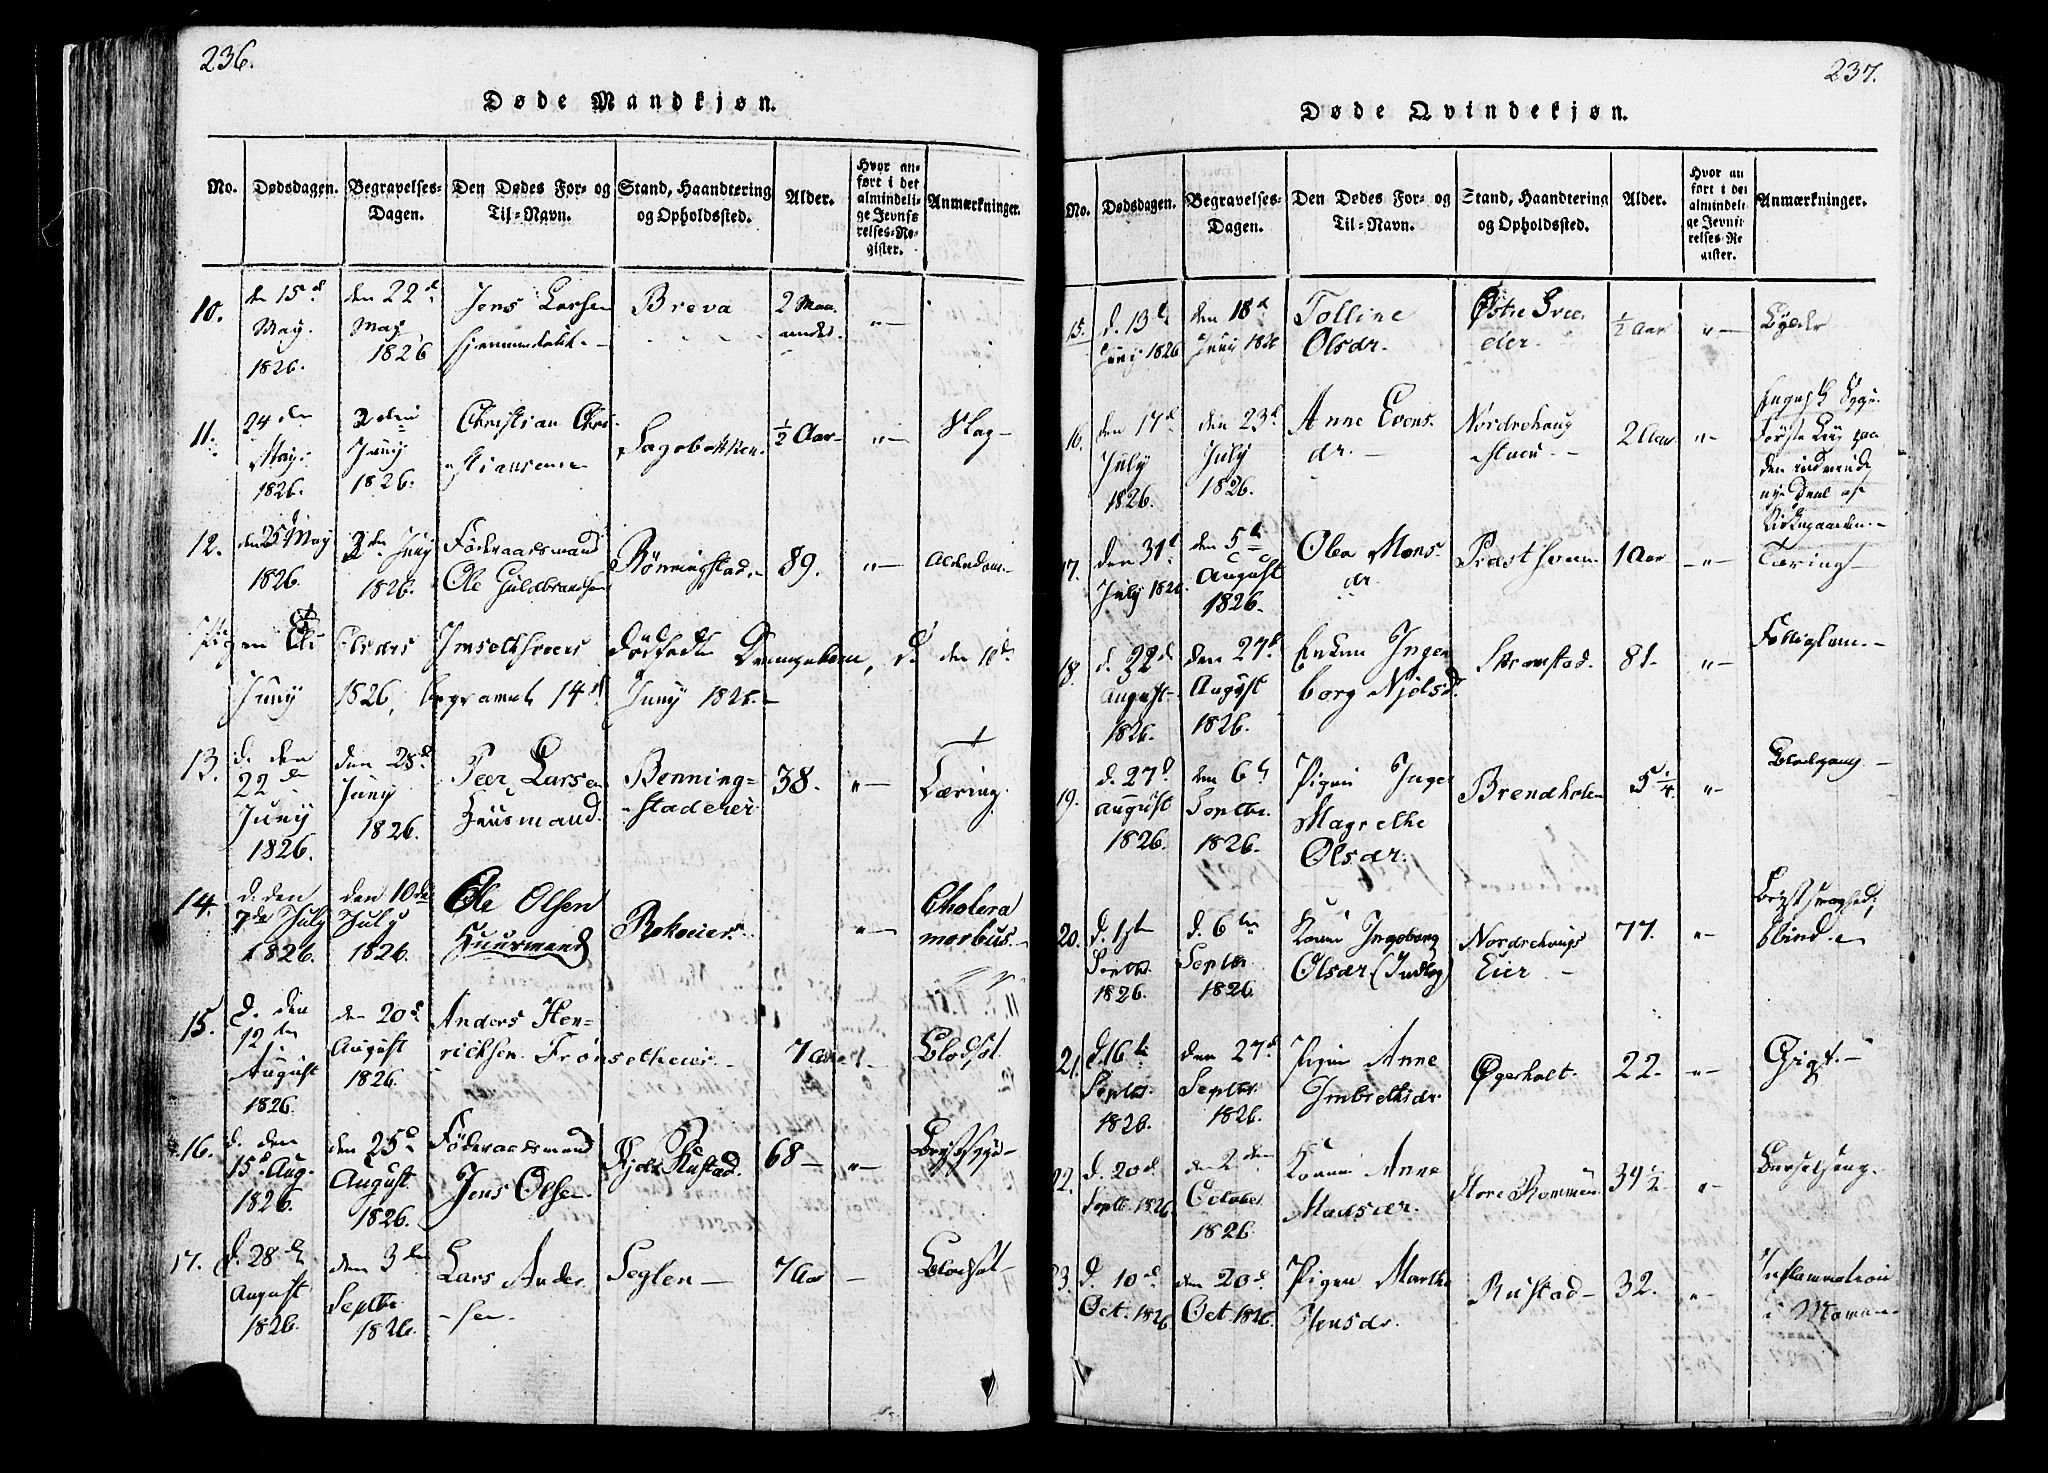 236.
Døde Mandkjøn.
No.
Dødsdagen.
Begravelses-
Dagen.
Den Dødes For- og
Til-Navn.
Stand, Haandtering
og Opholdssted.
Alder.
Hvor an-
ført i det
almindeli-
ge Jevnfø
relses-Re-
gister.
Anmærkninger.
10.
den 15d
May.
1826.
den 22d
May
1826
Jens Larsen
hjemmedøbt.
Breva
2 Maa-
neder.
"
11.
24den
May.
1826.
2den
Juny
1826.
Christian Chri-
stiansen
Sagebakken.
½ Aar
"
Slag
12.
den 25 May
1826.
2den Juny
1826.
Föderaadsmand
Ole Guldbrandsen
Rönningstad.
89.
"
Alderdom.
Pigen Eli Olsdr
Drengebarn, d. den 10d
Juny 1826, begravet 14d Juny 1826.
13.
d. den
22de
Juny
1826.
den 28d
Juny
1826.
Peer Larsen
Huusmand.
Benning-
stadeier
38.
"
Tæring.
14.
d. den
7de July
1826.
den 10de
July
1826.
Ole Olsen
Huusmand
Rokoeier.
"
Cholera
morbus.
15.
d. den
12te
August
1826.
den 20d
August
1826.
Anders Hen-
richsen Frønsetheier
7 Aar
Blodsot
16.
d. den
15d Aug.
1826.
den 25d
August
1826.
Föderaadsmand
Jens Olsen.
Rustad.
68
"
Brystsyge
17.
d. 28d
August
1826.
den 3den
Septbr
1826.
Lars Ander-
sen.
Seglen
7 Aar
Blodsot
237.
Døde Qvindekjøn.
No.
Dødsdagen.
Begravelses-
Dagen.
Den Dødes For- og
Til-Navn.
Stand, Haandtering
og Opholdssted.
Alder.
Hvor an
ført i det
almindeli
ge Jevnfø
relses-Re
gister.
Anmærkninger.
15.
d. 13d
Juny 1826
den 18d
Juny 1826
Tolline
Olsdr.
Østre Gree-
eier.
½ Aar
"
Bylder
16.
den 17d
July
1826.
den 23d
July
1826.
Anne Evens-
dr.
Nordrehaug
stuen
2 Aar
"
Engelsk Syge.
Første Liig paa
den indviede
nye Deel af
Kirkegaarden.
17.
den 31d
July 1826
den 5d
August
1826.
Olea Mons-
dr.
Præsthuus
1 Aar
"
Tæring
18.
d. 22d
August
1826.
den 27d
August
1826.
Enken Inge-
borg Njelsdr.
Strømstad.
81.
"
Fattiglem.
19.
d. 27d
August
1826.
den 6d
Septbr.
1826.
Pigen Inger
Magrethe
Olsdr.
Brendholen
5 ¼.
"
Blodgang
20.
d. 1ste
Septbr.
1826.
d. 6te
Septbr
1826.
Konen Ingeborg
Olsdr (Indlag)
Nordrehougs
Eier
77.
"
Brystsvaghed,
blind.
21.
d. 16te
Septbr.
1826.
den 27d
Septbr
1826.
Pigen Anne
Imbrethsdr.
Øgerholt.
22.
"
Gigt.
22.
d. 20d
Septb. 1826
den 2den
October
1826.
Konen Anne
Madsdr.
Store Rommen
39 ½
"
Barselseng.
23.
d. 10d
Oct. 1826
den 20d
Oct. 1826.
Pigen Marthe
Jensdr.
Rustad
32.
"
Inflammation
i Maven